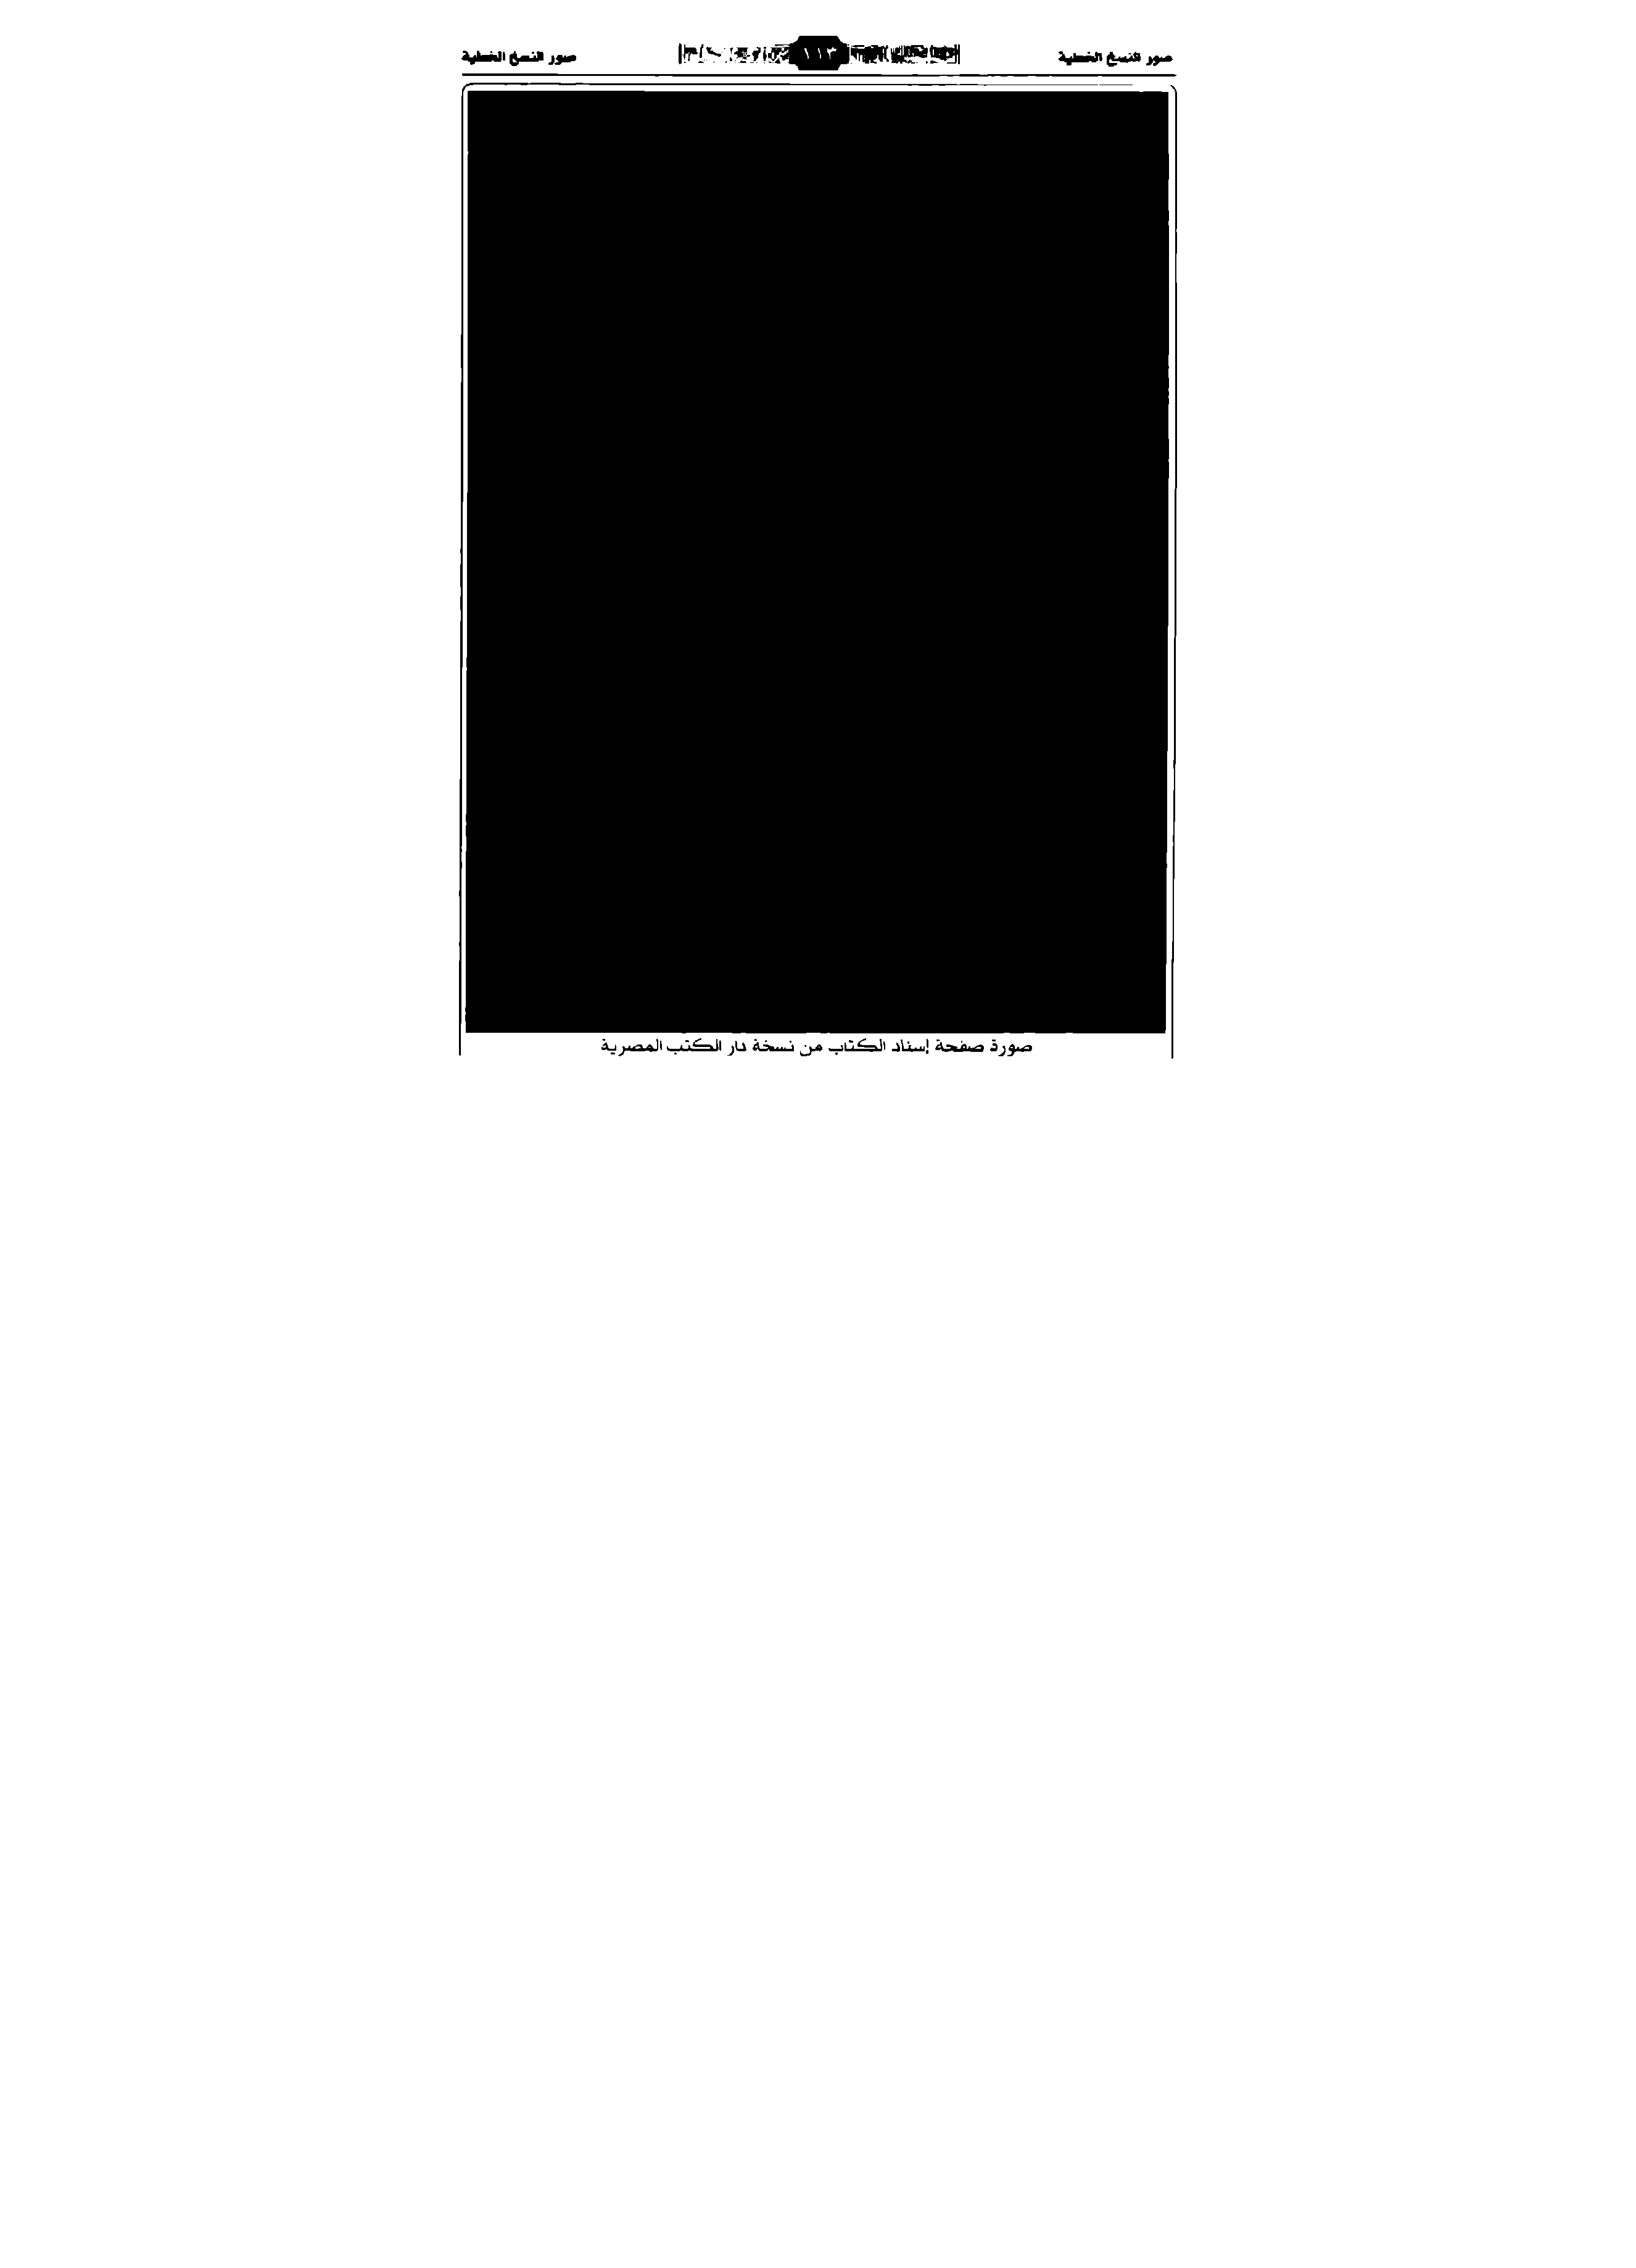 صور النسخ الخطية ١١٣ صور النسخ الخطية
صورة صفحة إسناد الكتاب من نسخة دار الكتب المصرية